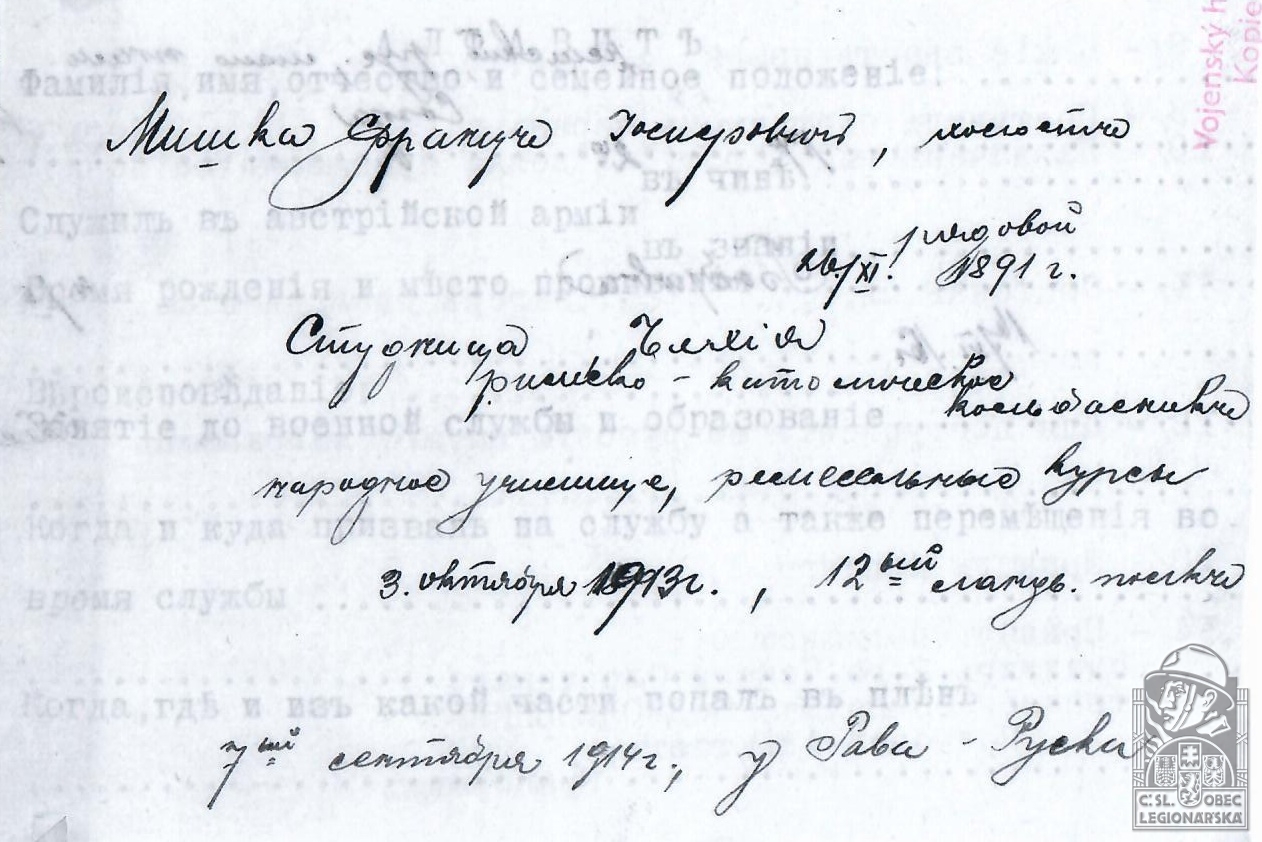 Фамилія, имя, отчество и семейное положеніе: ..........
Мишка Францъ Іосифовичъ, холостъ
въ чинѣ: ..........
Служилъ въ австрійской арміи
въ званіи ..........
рядовой
Время рожденія и мѣсто
26./XI. 1891 г.
Студница Чехія
Вѣроисповѣданіе ..........
римско-католическое
колбасникъ
Занятіе до военной службы и образованіе ..........
народное училище, ремесельные курсы
Когда и куда призванъ на службу а также перемѣщенія во
3. октября 1913 г., 12ый ландв. полкъ
время службы ..........
Когда, гдѣ и изъ какой части попалъ въ плѣнъ ..........
7ый сентября 1914 г., у Рава-Руска
Vojenský
Kopie
Č.SL. OBEC
LEGIONÁŘSKÁ